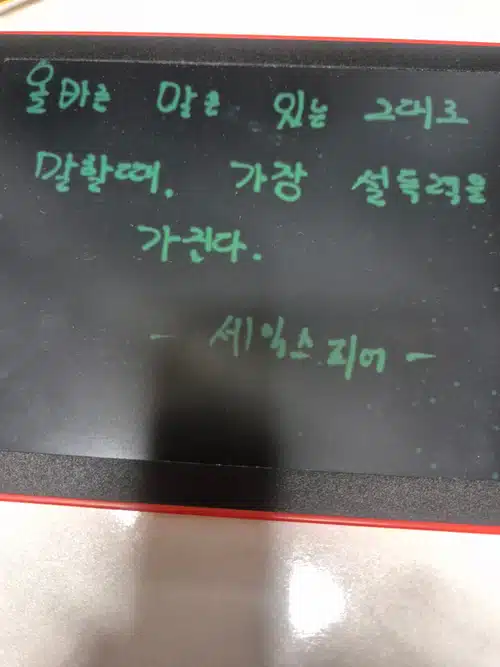 올바른 말은 있는 그대로
말할때, 가장 설득력을
가진다.
- 세익스피어 -